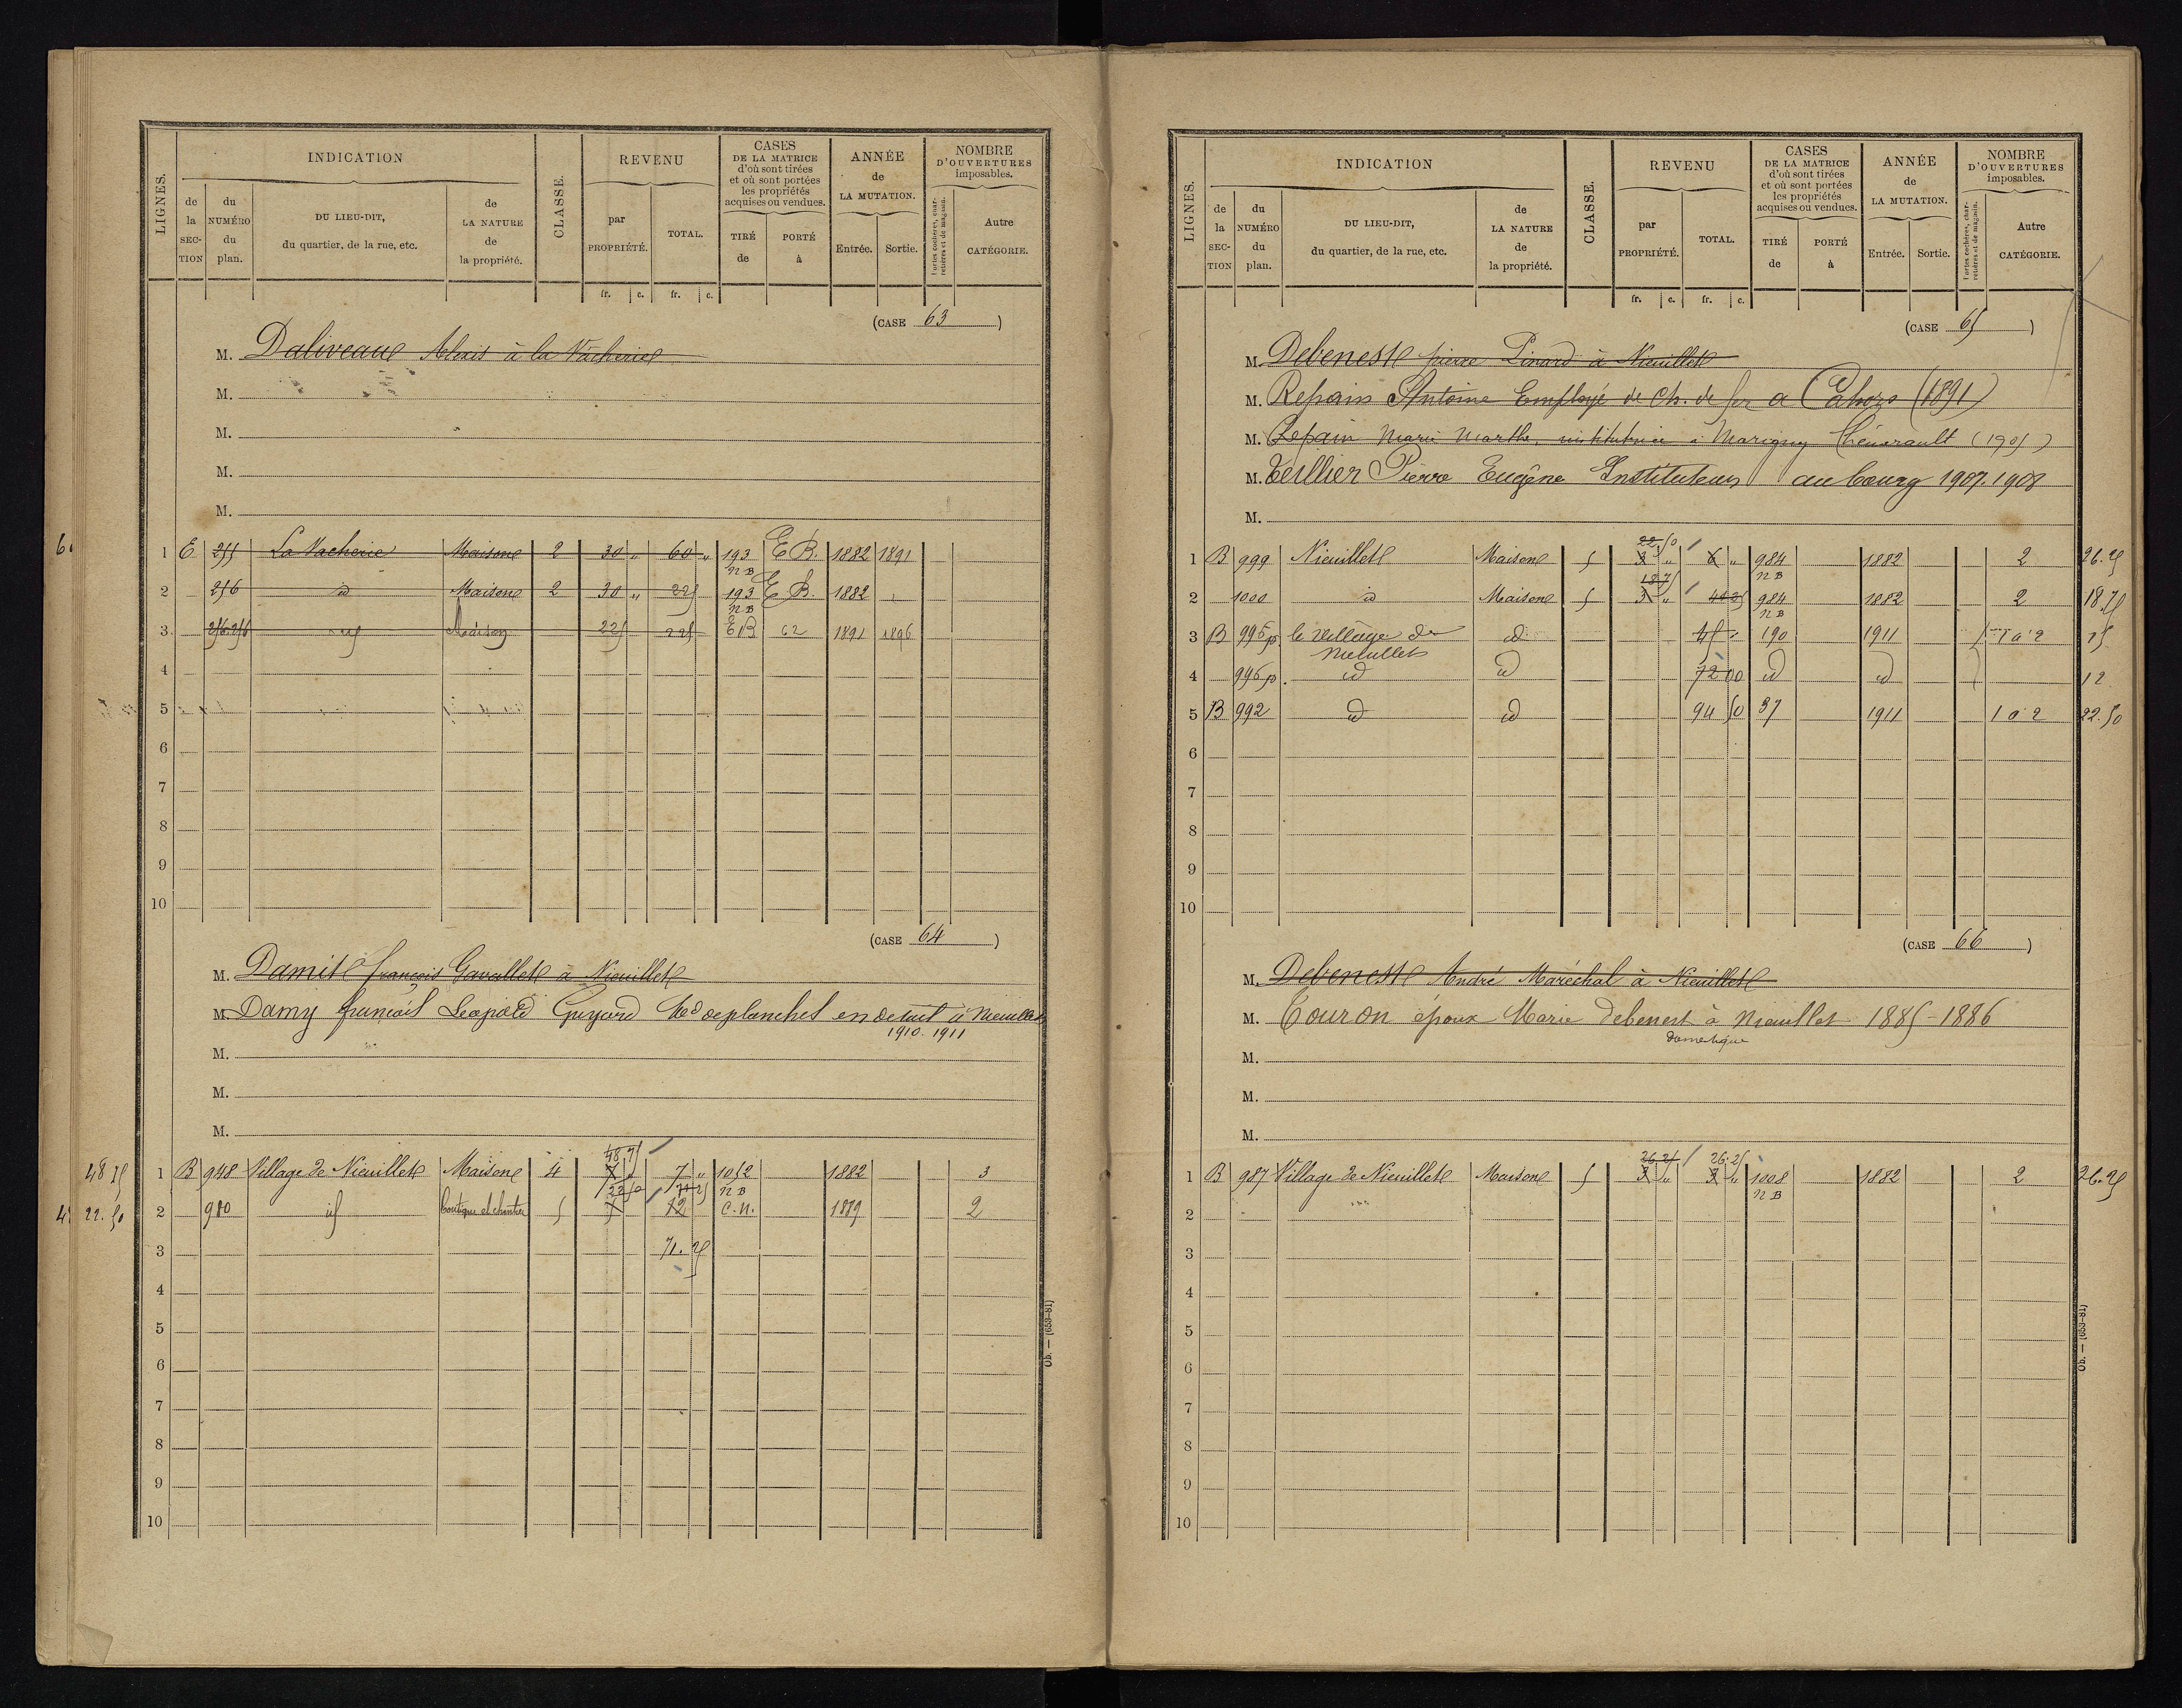 LIGNES.
INDICATION
de la SECTION
du NUMÉRO du plan.
DU LIEU-DIT, du quartier, de la rue, etc.
de LA NATURE de la propriété.
CLASSE.
REVENU
par PROPRIÉTÉ.
TOTAL.
fr. c. fr. c.
CASES DE LA MATRICE d'où sont tirées et où sont portées les propriétés acquises ou vendues.
TIRÉ de
PORTÉ à
ANNÉE de LA MUTATION.
Entrée. Sortie.
NOMBRE D'OUVERTURES imposables.
Portes cochères, charretières et de magasin.
Autre CATÉGORIE.
(CASE 63)
M. Daliveau Alexis à la Vacherie
M.
M.
M.
M.
1 E 255 La Vacherie Maison 2 30 " 60 " 193 n B E B. 1882 1891
2 256 id Maison 2 30 " 225 193 n B E B. 1882
3 256.256 id Maison 225 225 E B 62 1891 1896
4
5
6
7
8
9
10
(CASE 64)
M. Damit françois Gavallet à Nieuillet
M. Damy françois Leopold Guyard Md de planches en detail à Nieuillet
1910. 1911
M.
M.
M.
48 75 1 B 948 Village de Nieuillet Maison 4 48,75 7 " 7 " 1052 n B 1882 3
22.50 2 980 id boutique et chantier 5 22,50 5 71 25 12 C.N. 1889 2
3 71.25
4
5
6
7
8
9
10
Ob. — (653-81)
LIGNES.
INDICATION
de la SECTION
du NUMÉRO du plan.
DU LIEU-DIT, du quartier, de la rue, etc.
de LA NATURE de la propriété.
CLASSE.
REVENU
par PROPRIÉTÉ.
TOTAL.
fr. c. fr. c.
CASES DE LA MATRICE d'où sont tirées et où sont portées les propriétés acquises ou vendues.
TIRÉ de
PORTÉ à
ANNÉE de LA MUTATION.
Entrée. Sortie.
NOMBRE D'OUVERTURES imposables.
Portes cochères, charretières et de magasin.
Autre CATÉGORIE.
(CASE 65)
M. Debenest pierre Pinard à Nieuillet
M. Repain Antoine Employé de Ch. de fer a Cahors (1891)
M. Repain Marie Marthe, institutrice à Marigny Chémerault (1905)
M. Teillier Pierre Eugène Instituteur au bourg 1907.1908
M.
1 B 999 Nieuillet Maison 5 22,50 3 " 6 " 984 n B 1882 2 26.25
2 1000 id Maison 5 18.75 3 " 984 n B 1882 2 18.75
3 B 995 p le village de Nieuillet id 45 " 190 1911 1 à 2 75
4 996 p. id id 72 00 id id 12
5 B 992 id id 94 50 37 1911 1 à 2 22.50
6
7
8
9
10
(CASE 66)
M. Debenest André Maréchal à Nieuillet
M. Touron époux Marie debenest à Nieuillet 1885-1886
domestique
M.
M.
M.
1 B 987 Village de Nieuillet Maison 5 26.25 3 " 26.25 3 " 1008 n B 1882 2 26.25
2
3
4
5
6
7
8
9
10
Ob. — (653-81)